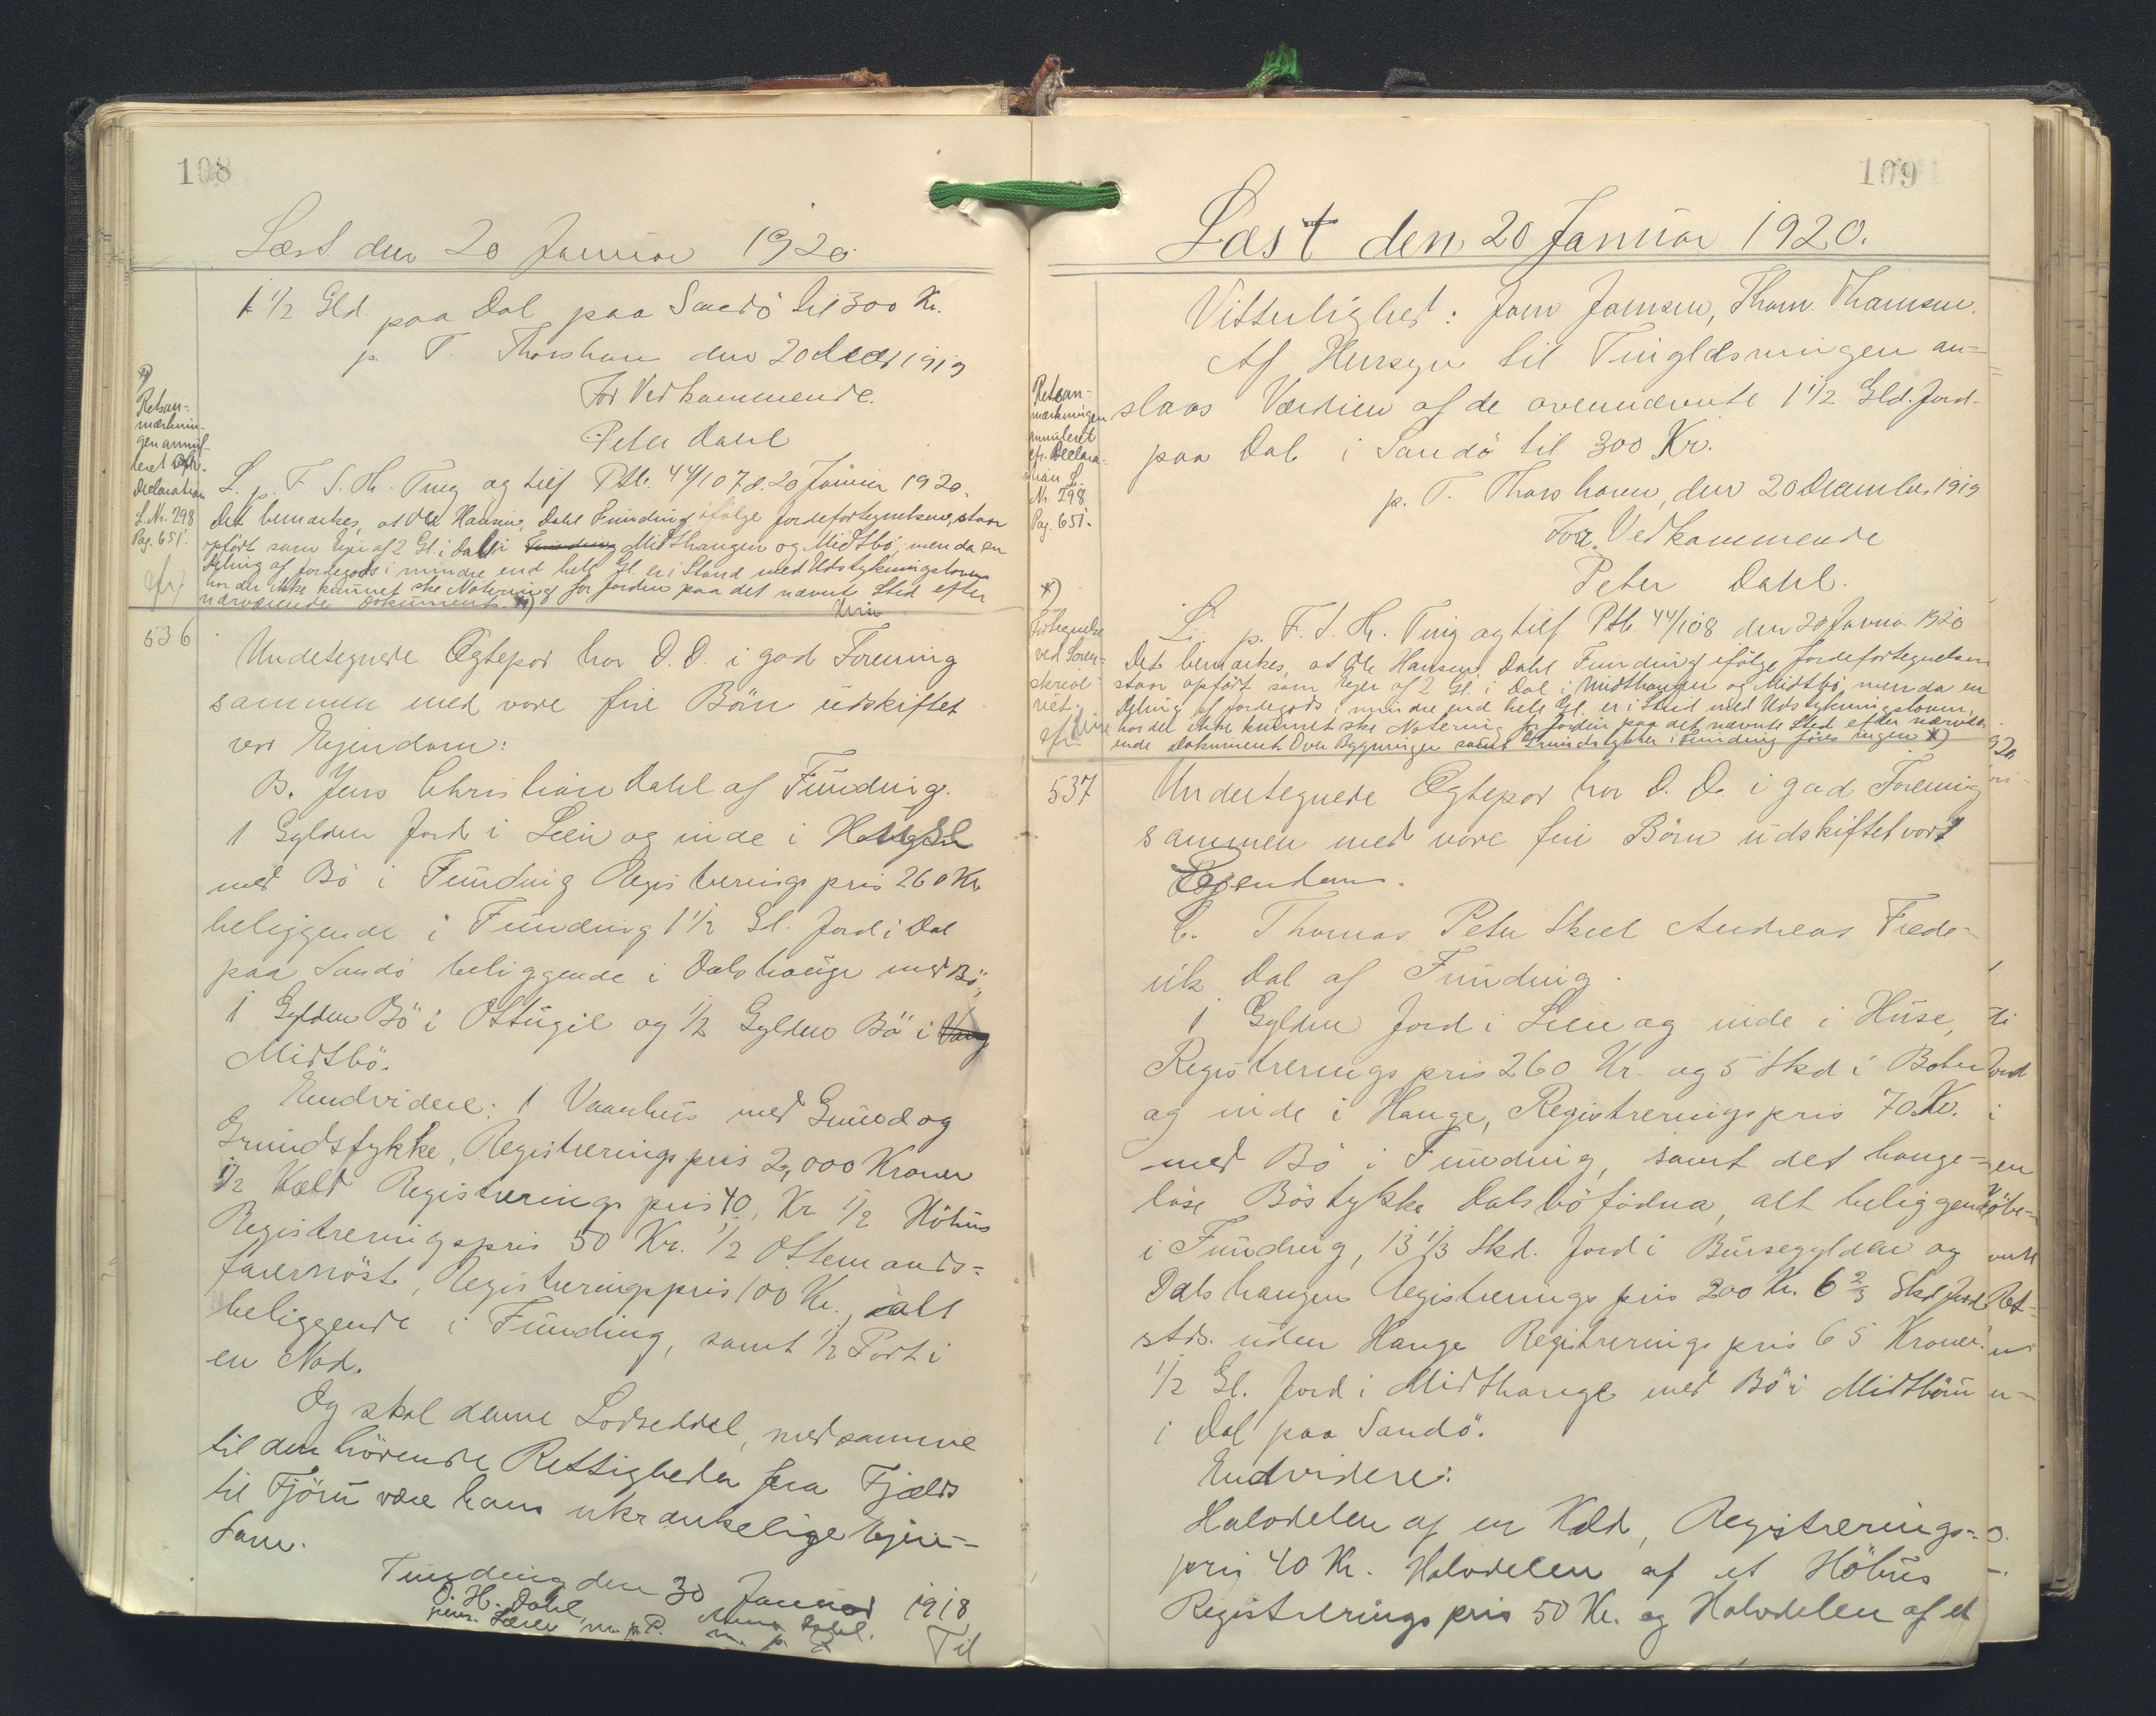 108
Læst den 20 Januar 1920
1 1/2 Gld. paa Dal paa Sandö til 300 Kr.
p. T. Thorshavn den 20 Decbr 1919
For Vedkommende.
Peter Dahl
Retsan-
mærknin-
gen annul-
leret cfr.
Declaration
L. Nr. 298
Pag. 651.
L. p. F. S. Th. Ting og tilf Ptb. 44/107 d. 20 Januar 1920.
Det bemærkes, at Ole Hansen, Dahl Funding ifölge Jordefortegnelsen, staar
opfört som Ejer af 2 Gl. i Dal i Midthaugen og Midtbö, men da en
Deling af Jordegods i mindre end hele Gl. er i Strid med Udstykningsloven
har der ikke kunnet ske Notering for Jorden paa det nævnte Sted efter
nærværende Dokument. *)
536
Undetegnede Ægtepar har D. D. i god Forening
sammen med vore fire Börn udskiftet
vor Ejendom:
B. Jens Christian Dahl af Funding.
1 Gylden Jord i Leen og inde i Hauge
med Bö i Funding Registreringspris 260 Kr.
beliggende i Funding 1 1/2 Gl. Jord i Dal
paa Sandö beliggende i Dalshauge med Bö,
1 Gylden Bö i Östugil og 1/2 Gylden Bö i Vang
Midtbö.
Endvidere: 1 Vaanhus med Grund og
Grundstykke, Registreringspris 2,000 Kroner
1/2 Kæld Registreringspris 40, Kr. 1/2 Höhus
Registreringspris 50 Kr. 1/2 Ottemands-
farernöst, Registreringspris 100 Kr., alt
beliggende i Funding, samt 1/2 Part i
en Nod.
Og skal denne Lodseddel, med samme
til den hörende Rettigheder fra Fjælds
til Fjöru være hans ukrænkelige Ejen-
dom.
Funding den 30 Januar 1918
O. H. Dahl, Anna Dahl.
pens. Lærer m. p. P. m. p. P.
Til
109
Læst den 20 Januar 1920.
Vitterlighed: Joen Joensen, Thom. Thomsen.
Af Hensyn til Tinglæsningen an-
slaas Værdien af de ovennævnte 1 1/2 Gld. Jord
paa Dal i Sandö til 300 Kr.
p. T. Thorshavn, den 20 December 1919
For Vedkommende
Peter Dahl.
Retsan-
mærkningen
annuleret
cfr. Declara-
tion L.
Nr. 298
Pag. 651.
L. p. F. S. Th. Ting og tilf Ptb. 44/108 den 20 Januar 1920
Det bemærkes, at Ole Hansen, Dahl Funding ifölge Jordefortegnelsen
staar opfört som Ejer af 2 Gl. i Dal i Midthaugen og Midtbö, men da en
Deling af Jordegods i mindre end hele Gl. er i Strid med Udstykningsloven,
har der ikke kunnet ske Notering for Jorden paa det nævnte Sted efter nærvær-
ende Dokument. Over Bygninger samt Grundstykker i Funding föres ingen *)
*)
Fortegnelse
ved Soren-
skrive-
riet.
537
Undertegnede Ægtepar har D. D. i god Forening
sammen med vore fire Börn udskiftet vort
Ejendom.
C. Thomas Peter Skeel Andreas Frede-
rik Dal af Funding.
1 Gylden Jord i Leen og inde i Huse,
Registreringspris 260 Kr. og 5 Skd i Botni
og inde i Hauge, Registreringspris 70 Kr.
med Bö i Funding, samt det hauge-
löse Böstykke Dalsböfödna, alt beliggende
i Funding, 13 1/3 Skd. Jord i Bursegylden og
Dalshaugen Registreringspris 200 Kr. 6 2/3 Skd Jord
stds. uden Hauge Registreringspris 65 Kroner
1/2 Gl. Jord i Midthauge med Bö i Midtbönu
i Dal paa Sandö.
Endvidere:
Halvdelen af en Kæld, Registrerings-
pris 40 Kr. Halvdelen af et Höhus
Registreringspris 50 Kr. og Halvdelen af et